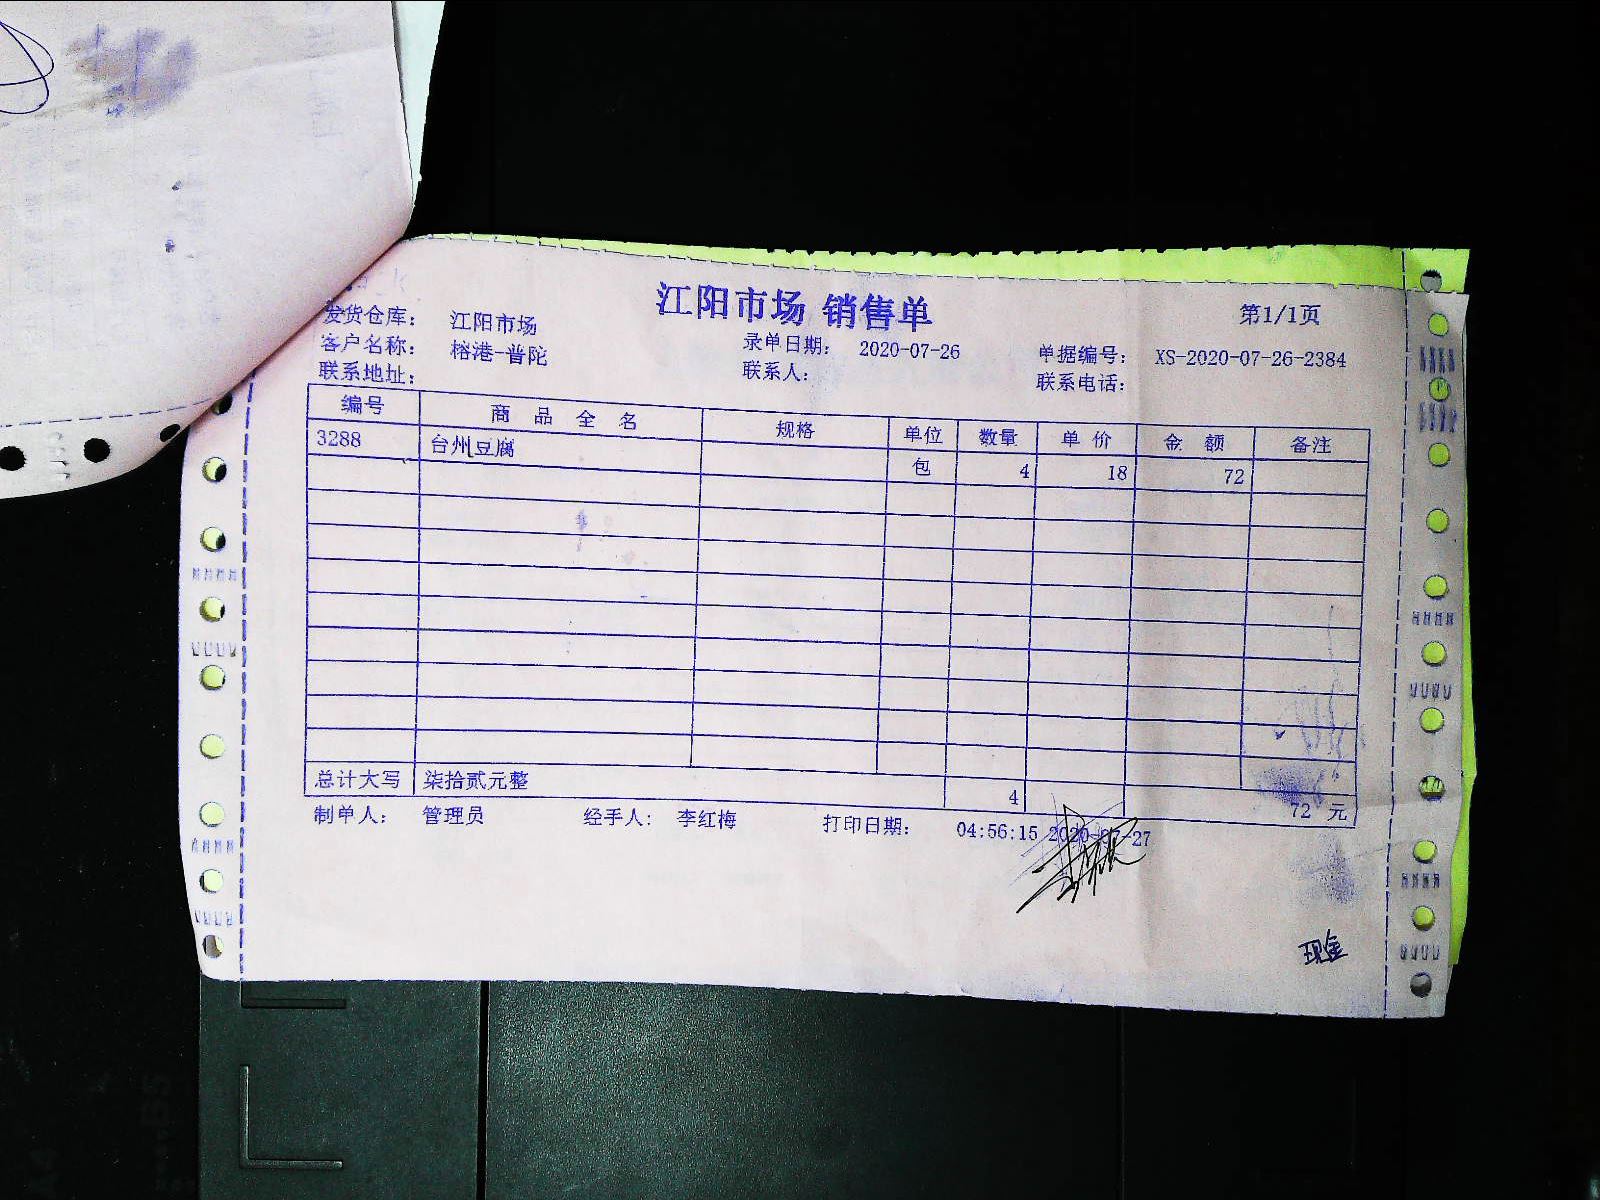 江阳市场 销售单
第1/1页
发货仓库： 江阳市场
客户名称： 榕港-普陀 录单日期： 2020-07-26 单据编号： XS-2020-07-26-2384
联系地址： 联系人： 联系电话：
编号 商品全名 规格 单位 数量 单价 金额 备注
3288 台州豆腐 包 4 18 72
总计大写 柒拾贰元整 4 72 元
制单人： 管理员 经手人： 李红梅 打印日期： 04:56:15 2020-07-27
现金